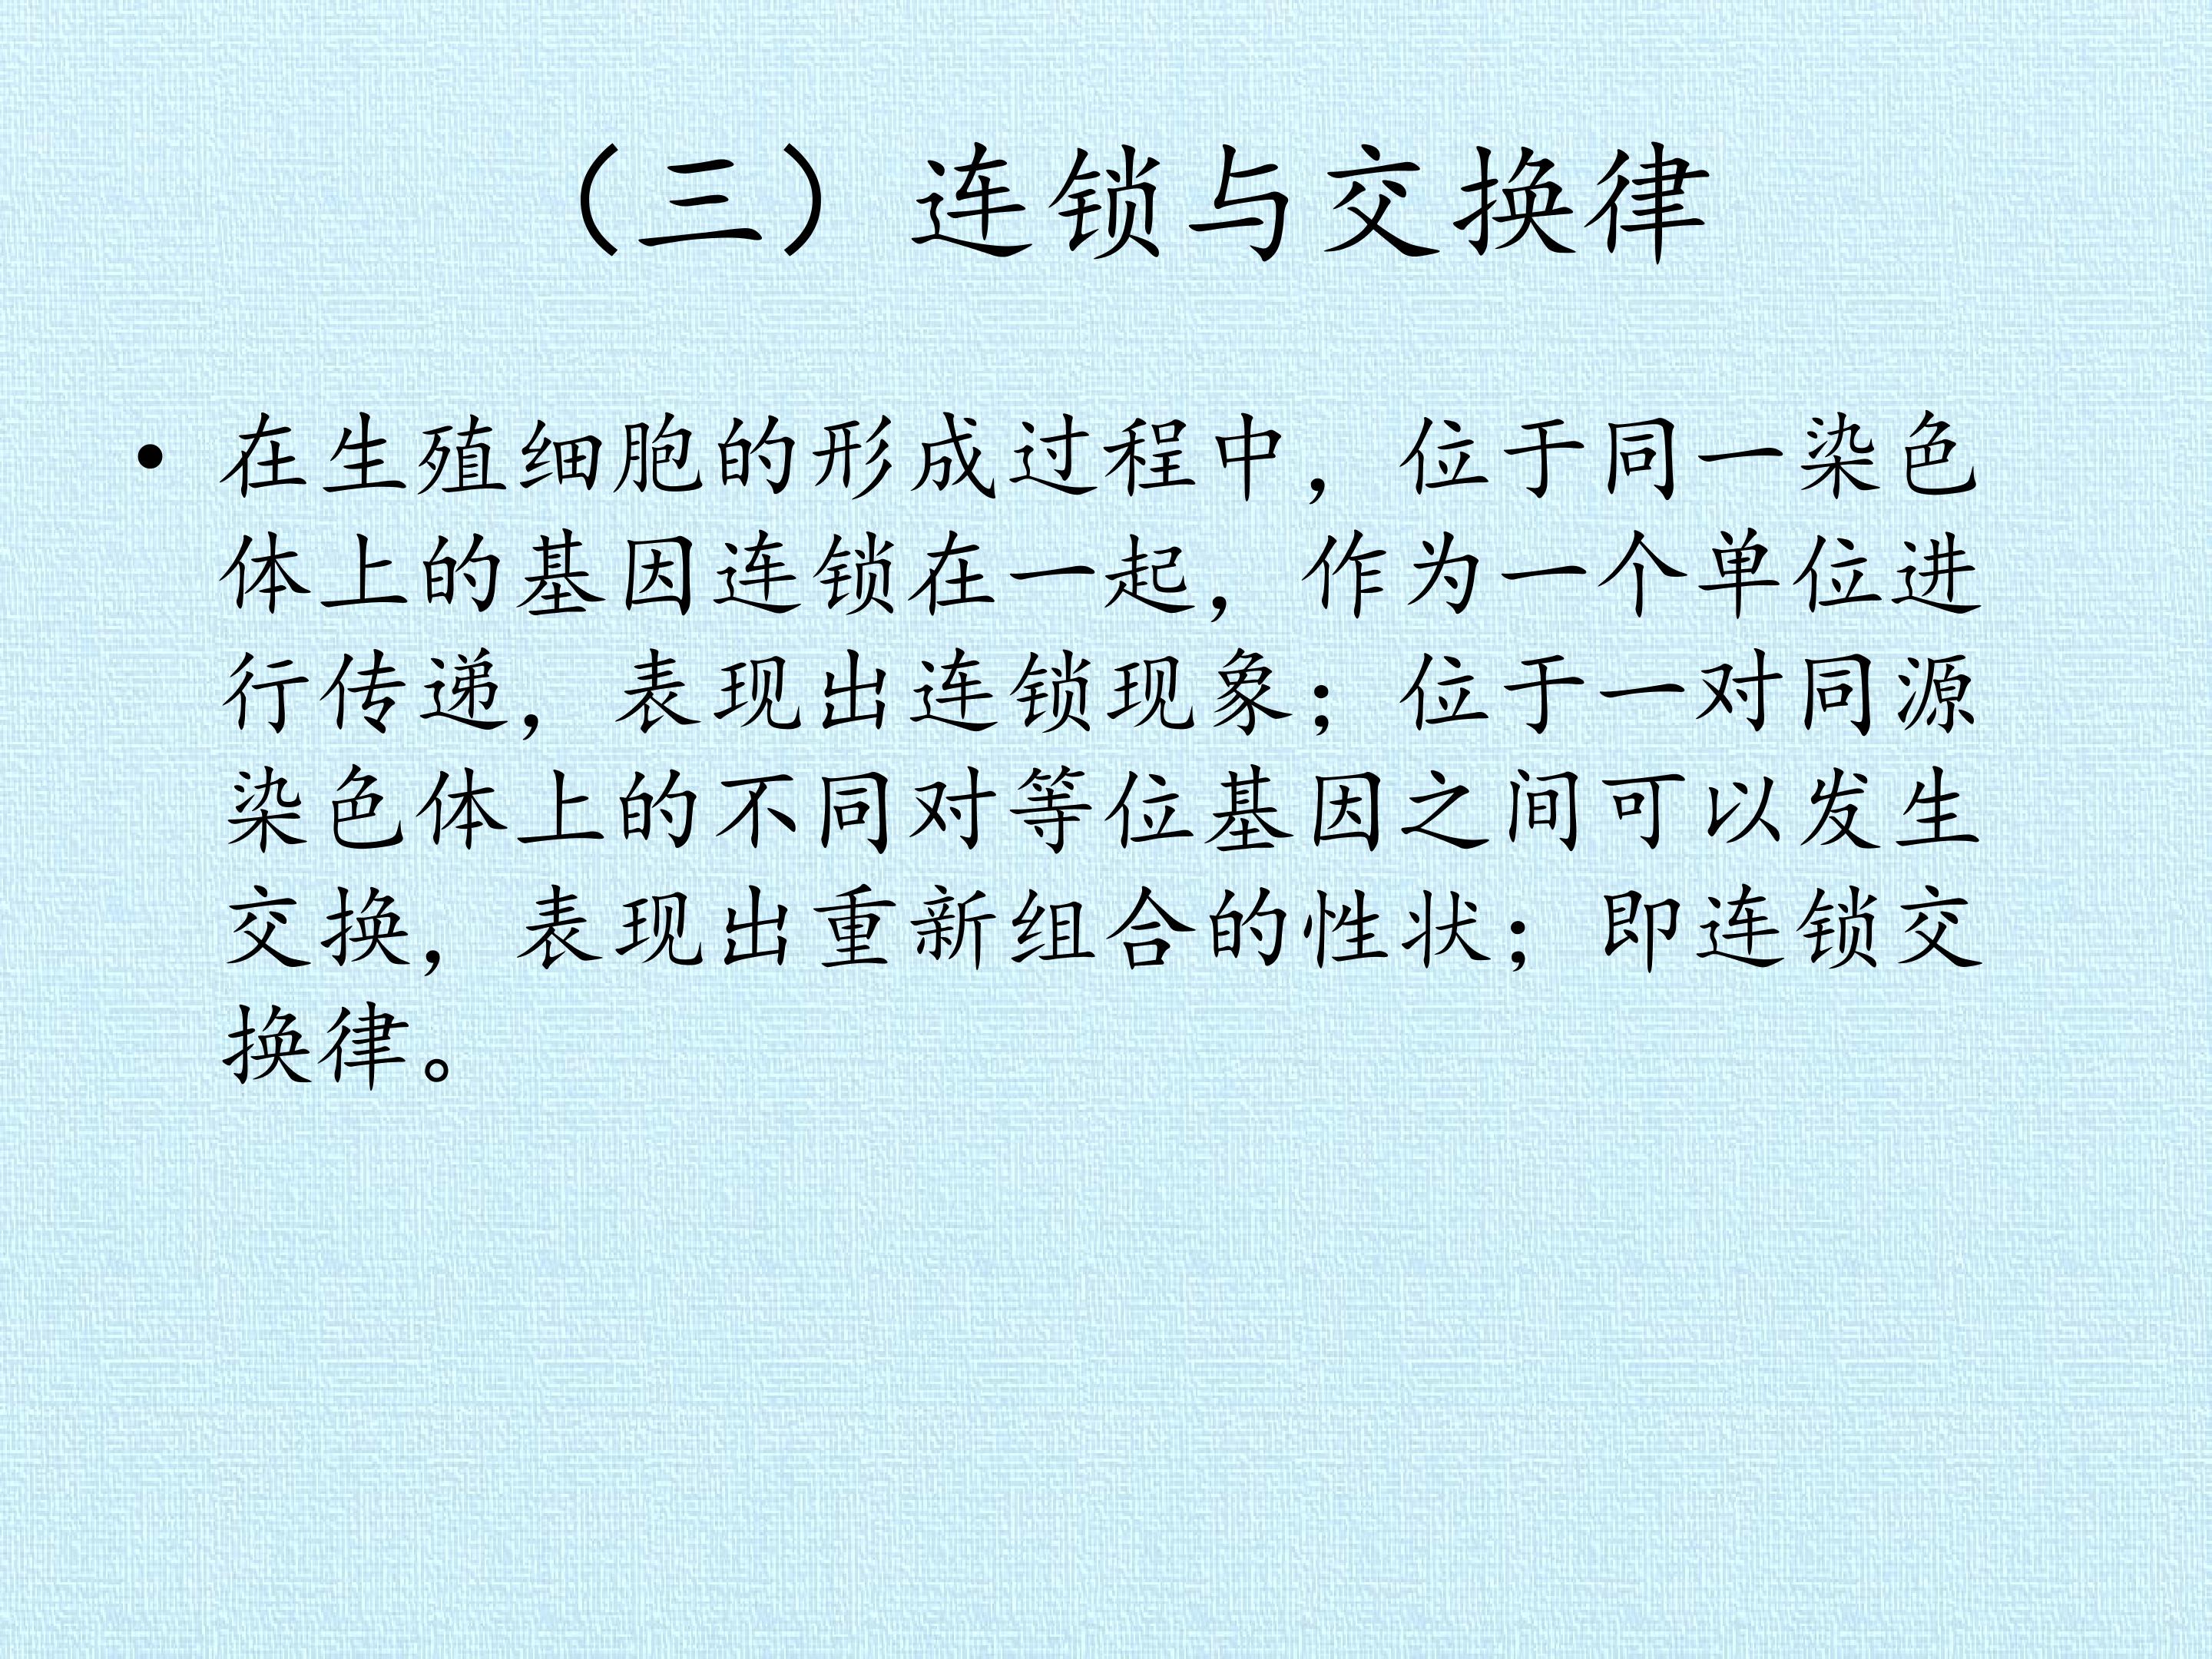 （三）连锁与交换律
• 在生殖细胞的形成过程中，位于同一染色
体上的基因连锁在一起，作为一个单位进
行传递，表现出连锁现象；位于一对同源
染色体上的不同对等位基因之间可以发生
交换，表现出重新组合的性状；即连锁交
换律。